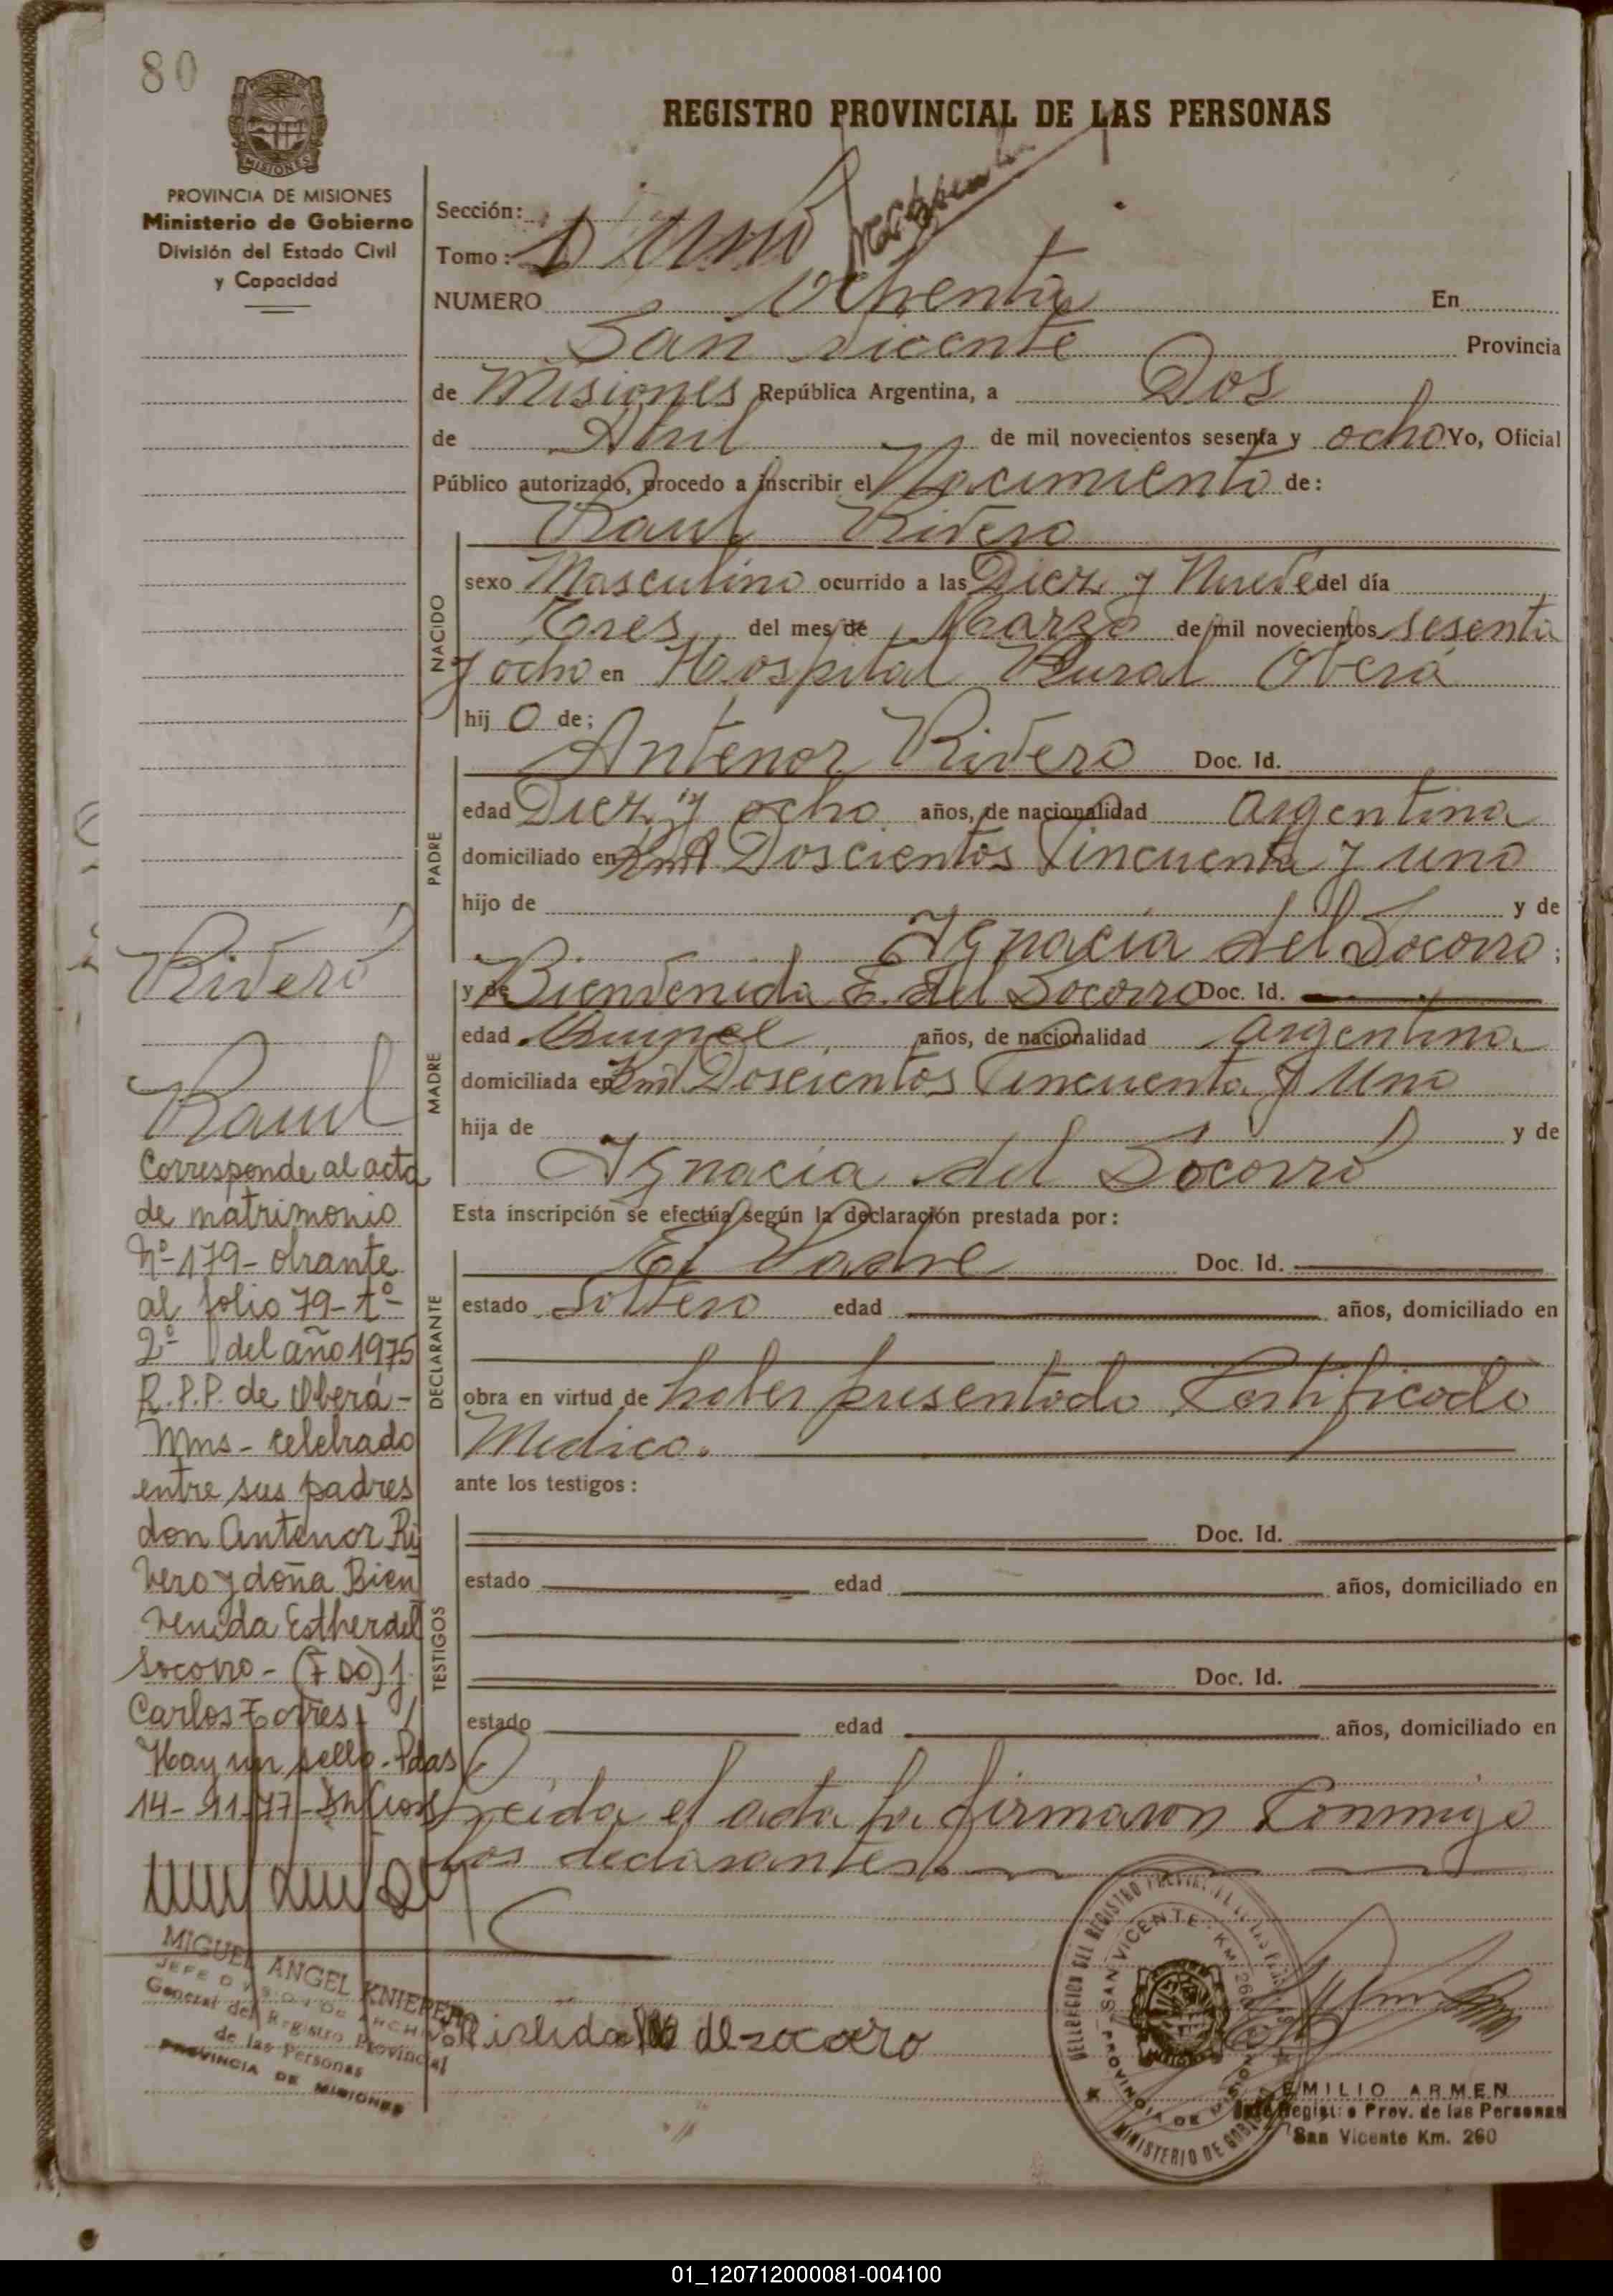 80
REGISTRO PROVINCIAL DE LAS PERSONAS
PROVINCIA DE MISIONES
Ministerio de Gobierno
División del Estado Civil
y Capacidad
Sección:
Tomo: 1 Uno
NUMERO Ochenta En
San Vicente Provincia
de Misiones República Argentina, a Dos
de Abril de mil novecientos sesenta y ocho Yo, Oficial
Público autorizado, procedo a inscribir el Nacimiento de:
Raul Rivero
NACIDO
sexo Masculino ocurrido a las Diez y Nueve del día
Tres del mes de Marzo de mil novecientos sesenta
y ocho en Hospital Rural Oberá
hij o de;
PADRE
Antenor Rivero Doc. Id.
edad Diez y ocho años, de nacionalidad argentina
domiciliado en Km Doscientos Cincuenta y uno
hijo de y de
Ignacia del Socorro;
MADRE
y de Bienvenida E. del Socorro Doc. Id.
edad Quince años, de nacionalidad argentina
domiciliada en Km Doscientos Cincuenta y Uno
hija de y de
Ignacia del Socorro
Esta inscripción se efectúa según la declaración prestada por:
DECLARANTE
El Padre Doc. Id.
estado Soltero edad años, domiciliado en
obra en virtud de haber presentado Certificado
Medico.
ante los testigos:
TESTIGOS
Doc. Id.
estado edad años, domiciliado en
Doc. Id.
estado edad años, domiciliado en
Leida el acta la firmaron Conmigo
los declarantes
Rivero
Raul
Corresponde al acta
de matrimonio
Nº-179- obrante
al folio 79-tº-
2º- del año 1975
R.P.P. de Oberá-
Mns- celebrado
entre sus padres
don Antenor Ri
vero y doña Bien
venida Esther del
Socorro- (FDO) J.
Carlos Torres
Hay un sello- Pdas
14-11-77-
MIGUEL ANGEL KNIEPERT
JEFE DIVISION DE ARCHIVO
General del Registro Provincial
de las Personas
PROVINCIA DE MISIONES
de socorro
DELEGACION DEL REGISTRO PROVINCIAL DE LAS PERSONAS
SAN VICENTE - KM. 260
PROVINCIA DE MISIONES
MINISTERIO DE GOBIERNO
EMILIO ARMEN
Jefe Registro Prov. de las Personas
San Vicente Km. 260
01_120712000081-004100